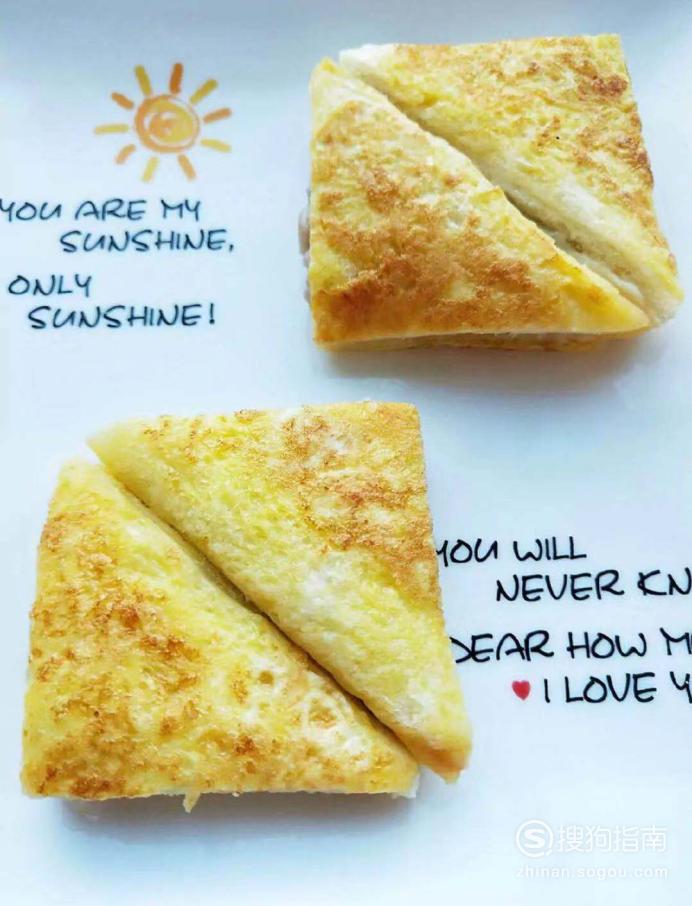 YOU ARE MY
SUNSHINE,
ONLY
SUNSHINE!
YOU WILL
NEVER KN
DEAR HOW
I LOVE
搜狗指南
zhinan.sogou.com